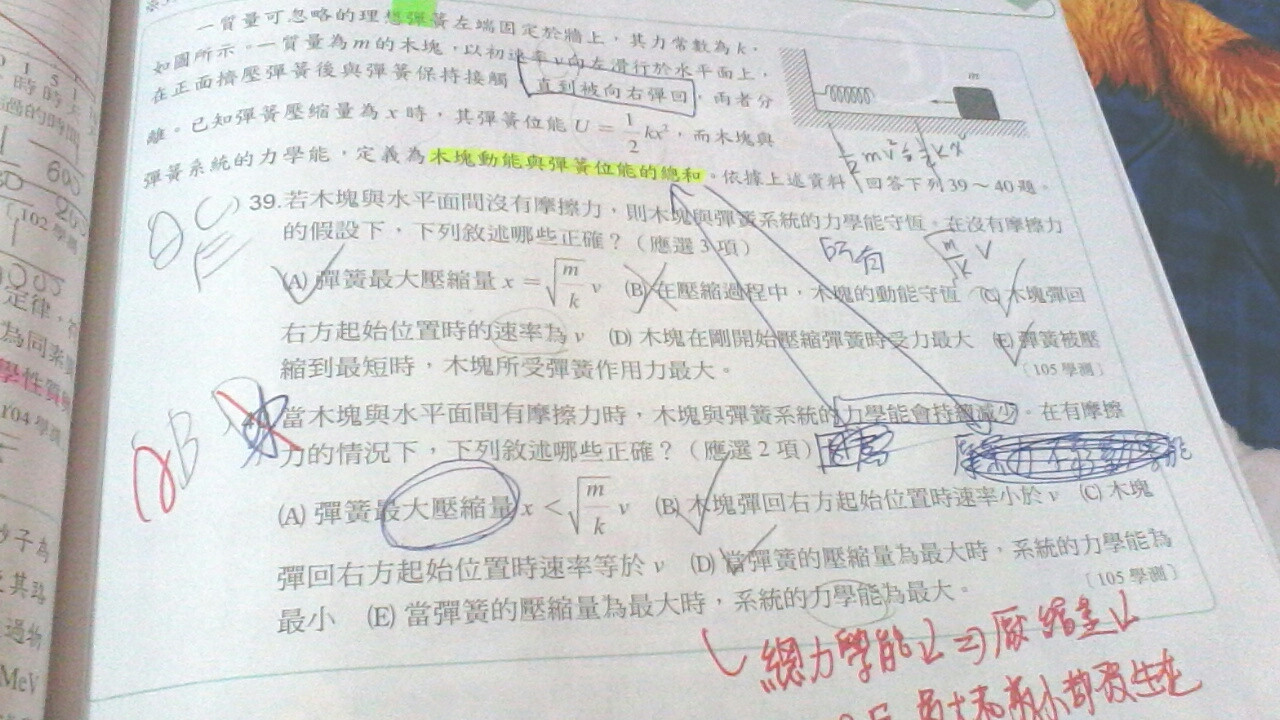 一質量可忽略的理想彈簧左端固定於牆上，其力常數為k，
如圖所示。一質量為m的木塊，以初速率v向左滑行於水平面上，
在正面擠壓彈簧後與彈簧保持接觸，直到被向右彈回，兩者分
離。已知彈簧壓縮量為x時，其彈簧位能U=1/2kx²，而木塊與
彈簧系統的力學能，定義為木塊動能與彈簧位能的總和。依據上述資料，回答下列39～40題。
m
1/2mv²=1/2kx²
）39.若木塊與水平面間沒有摩擦力，則木塊與彈簧系統的力學能守恆。在沒有摩擦力
的假設下，下列敘述哪些正確？（應選3項）
所有
√(m/k) v
(A) 彈簧最大壓縮量x=√(m/k) v (B) 在壓縮過程中，木塊的動能守恆 (C) 木塊彈回
右方起始位置時的速率為v (D) 木塊在剛開始壓縮彈簧時受力最大 (E) 彈簧被壓
縮到最短時，木塊所受彈簧作用力最大。
〔105學測〕
當木塊與水平面間有摩擦力時，木塊與彈簧系統的力學能會持續減少。在有摩擦
力的情況下，下列敘述哪些正確？（應選2項）
B
(A) 彈簧最大壓縮量x<√(m/k) v (B) 木塊彈回右方起始位置時速率小於v (C) 木塊
彈回右方起始位置時速率等於v (D) 當彈簧的壓縮量為最大時，系統的力學能為
最小 (E) 當彈簧的壓縮量為最大時，系統的力學能為最大。
〔105學測〕
總力學能↓⇒壓縮量↓
600
200
〔102學測
定律，
為同素
學性質
104學測
沙子為
MeV